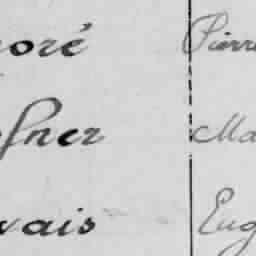 noré Pierre
fner Ma
vais Eug